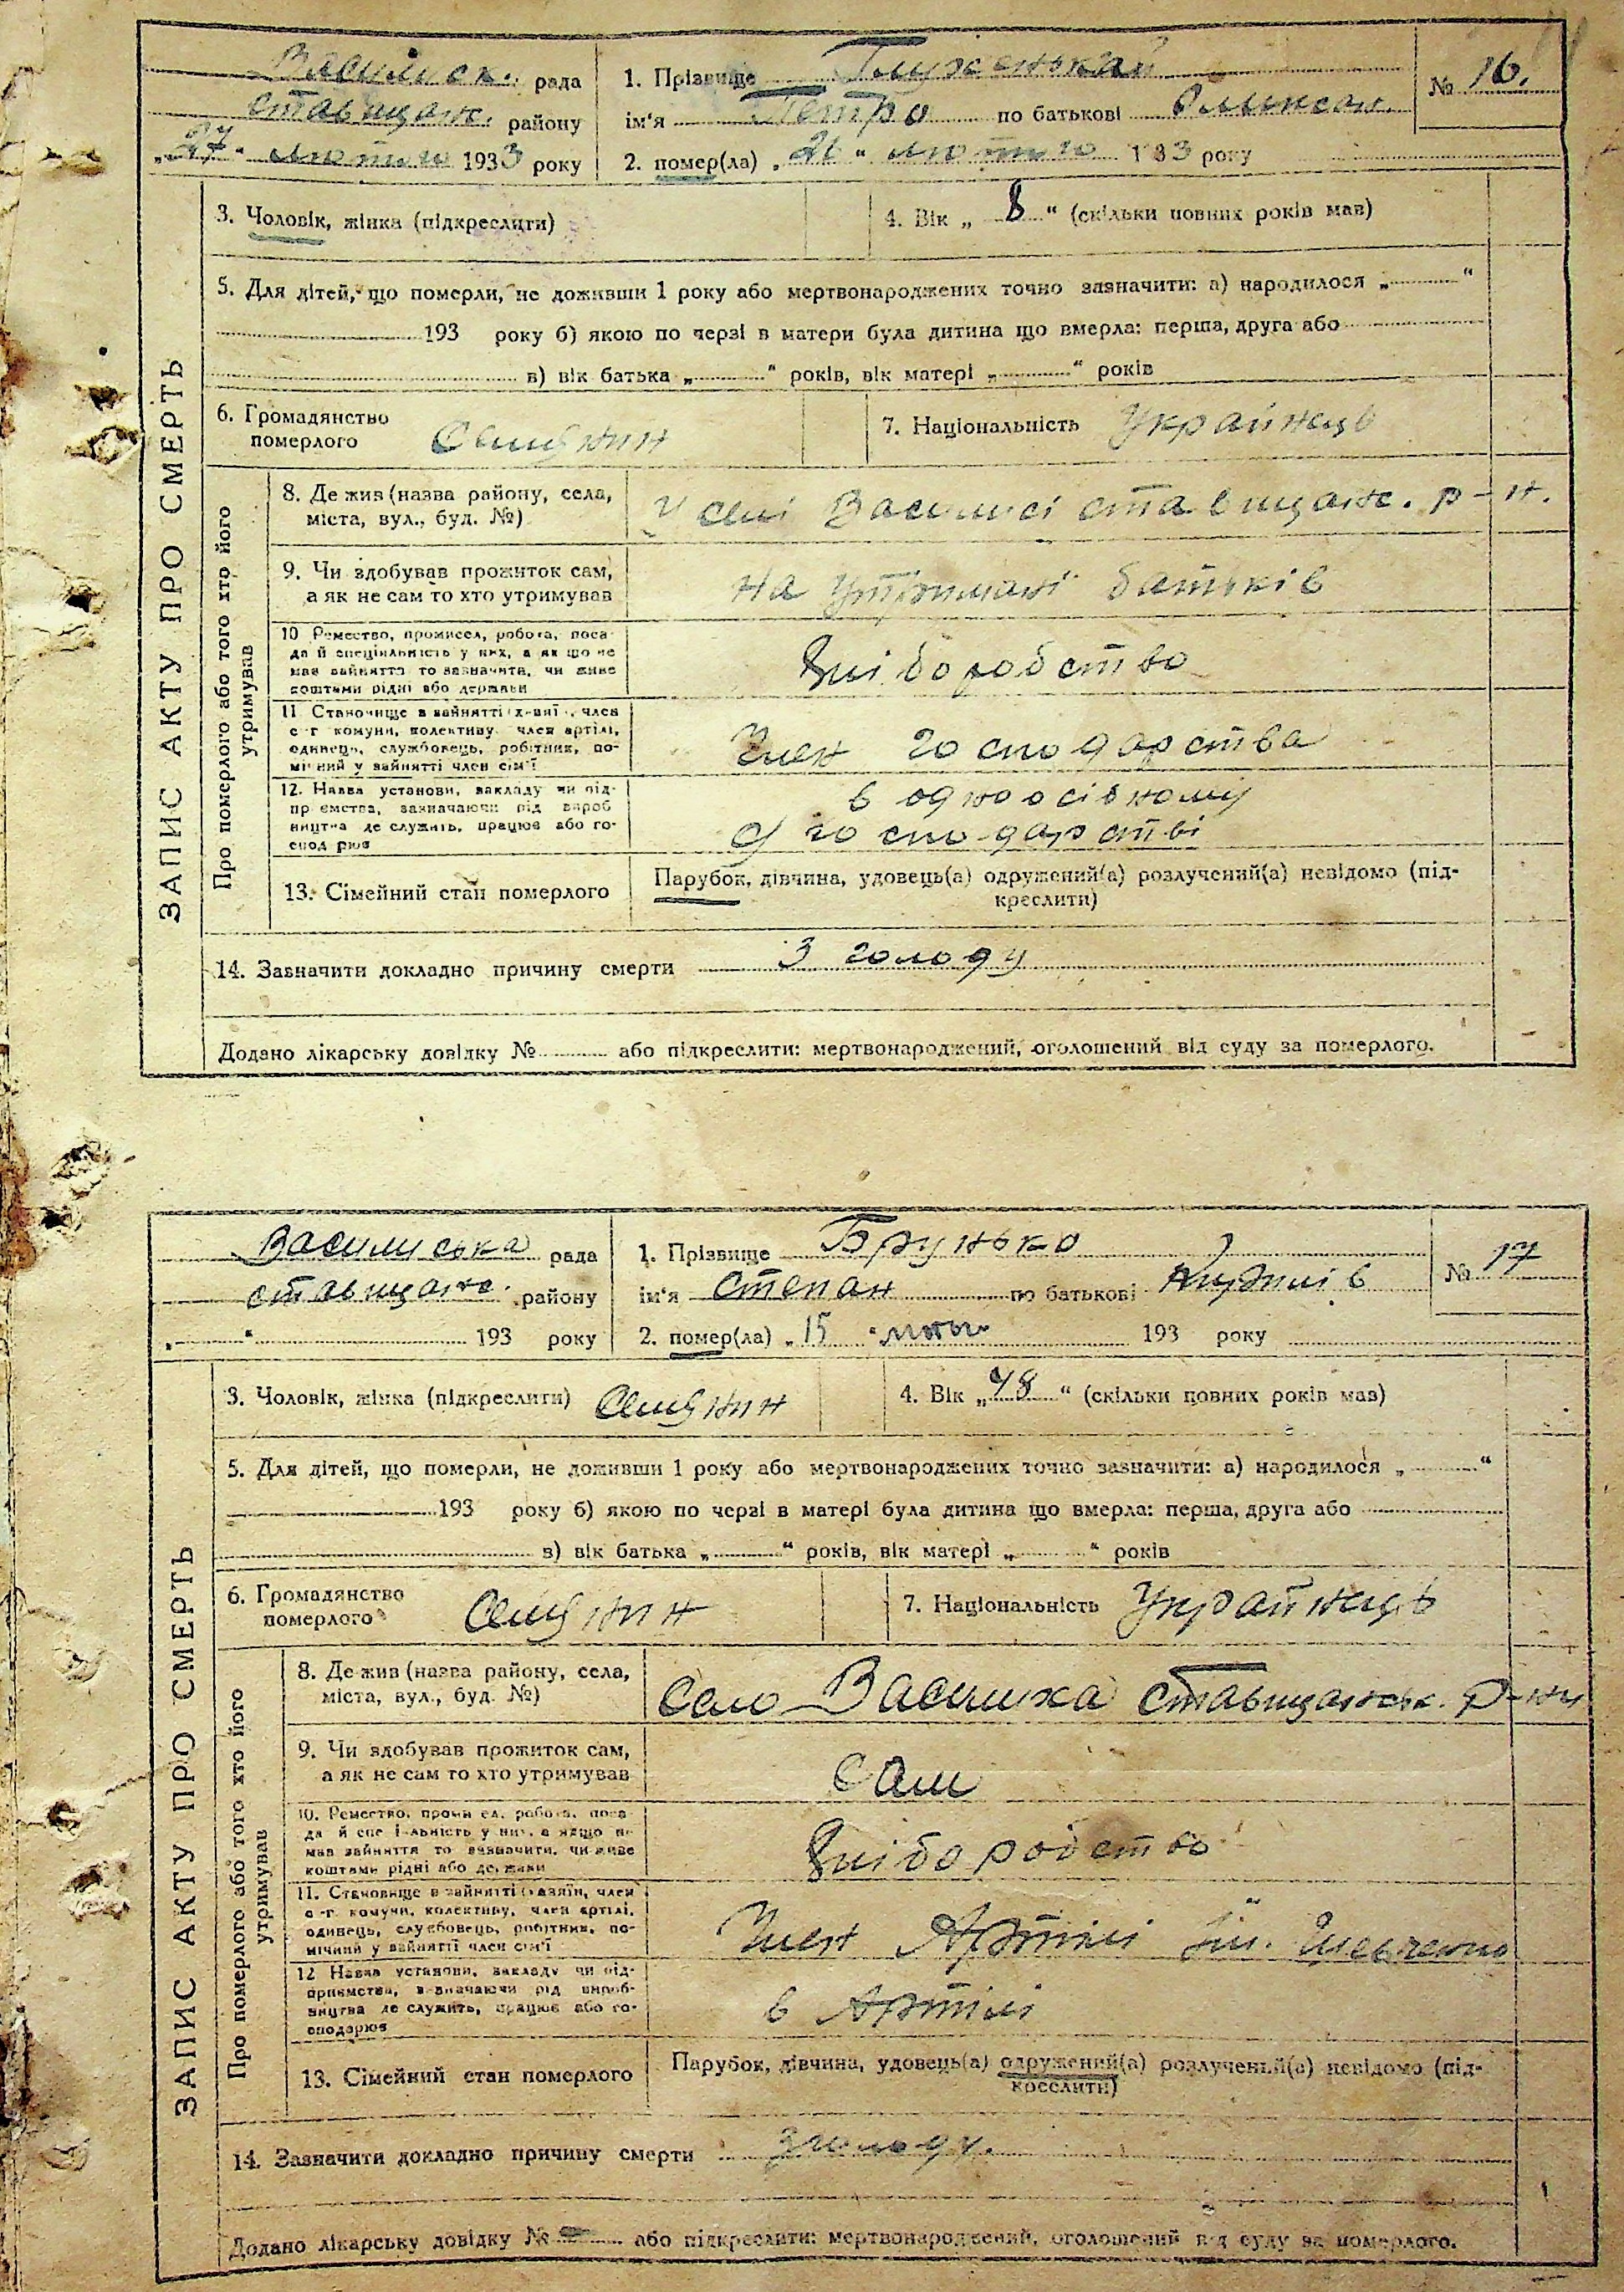 ЗАПИС АКТУ ПРО СМЕРТЬ
Василиск. рада
ставищанс. району
„27“ лютого 1933 року
1. Прізвище
ім'я Петро по батькові Олексан.
№ 16.
2. помер(ла) „26“ лютого 1933 року
3. Чоловік, жінка (підкреслити)
4. Вік „8“ (скільки повних років мав)
5. Для дітей, що померли, не доживши 1 року або мертвонароджених точно зазначити: а) народилося „ “
193 року б) якою по черзі в матери була дитина що вмерла: перша, друга або
в) вік батька „ “ років, вік матері „ “ років
6. Громадянство
померлого
Селянин
7. Національність Українець
Про померлого або того хто його
утримував
8. Де жив (назва району, села,
міста, вул., буд. №)
У селі Василисі ставищанс. р-н.
9. Чи здобував прожиток сам,
а як не сам то хто утримував
на утриманні батьків
10 Ремество, промисел, робота, поса-
да й спеціяльність у них, а як що не
мав зайняття то зазначити, чи живе
коштами рідні або держави
Хліборобство
11 Становище в зайнятті (хазяїн, член
с-г комуни, колективу член артілі,
одинець, службовець, робітник, по-
мічний у зайнятті член сім'ї
Член господарства
12. Назва установи, закладу чи під-
приємства, зазначаючи від вироб
ництва де служить, працює або го-
спод рює
в одноосібному
господарстві
13. Сімейний стан померлого
Парубок, дівчина, удовець(а) одружений(а) розлучений(а) невідомо (під-
креслити)
14. Зазначити докладно причину смерти З голоду
Додано лікарську довідку № або підкреслити: мертвонароджений, оголошений від суду за померлого.
ЗАПИС АКТУ ПРО СМЕРТЬ
Василиська рада
ставищанс. району
„ “ 193 року
1. Прізвище Брунько
ім'я Степан по батькові
№ 17
2. помер(ла) „15“ 193 року
3. Чоловік, жінка (підкреслити) Селянин
4. Вік „48“ (скільки повних років мав)
5. Для дітей, що померли, не доживши 1 року або мертвонароджених точно зазначити: а) народилося „ “
193 року б) якою по черзі в матері була дитина що вмерла: перша, друга або
в) вік батька „ “ років, вік матері „ “ років
6. Громадянство
померлого
Селянин
7. Національність Українець
Про померлого або того хто його
утримував
8. Де жив (назва району, села,
міста, вул., буд. №)
Село Василиха Ставищанськ. р-ну
9. Чи здобував прожиток сам,
а як не сам то хто утримував
Сам
10. Ремество, промисел, робота, поса-
да й спеціяльність у них, а якщо не
мав зайняття то зазначити, чи живе
коштами рідні або держави
Хліборобство
11. Становище в зайнятті (хазяїн, член
с-г комуни, колективу, член артілі,
одинець, службовець, робітник, по-
мічний у зайнятті член сім'ї
Член Артілі ім. Шевченко
12 Назва установи, закладу чи під-
приємства, зазначаючи рід вироб-
ництва де служить, працює або го-
сподарює
в Артілі
13. Сімейний стан померлого
Парубок, дівчина, удовець(а) одружений(а) розлучений(а) невідомо (під-
креслити)
14. Зазначити докладно причину смерти З голоду.
Додано лікарську довідку № або підкреслити: мертвонароджений, оголошений від суду за померлого.